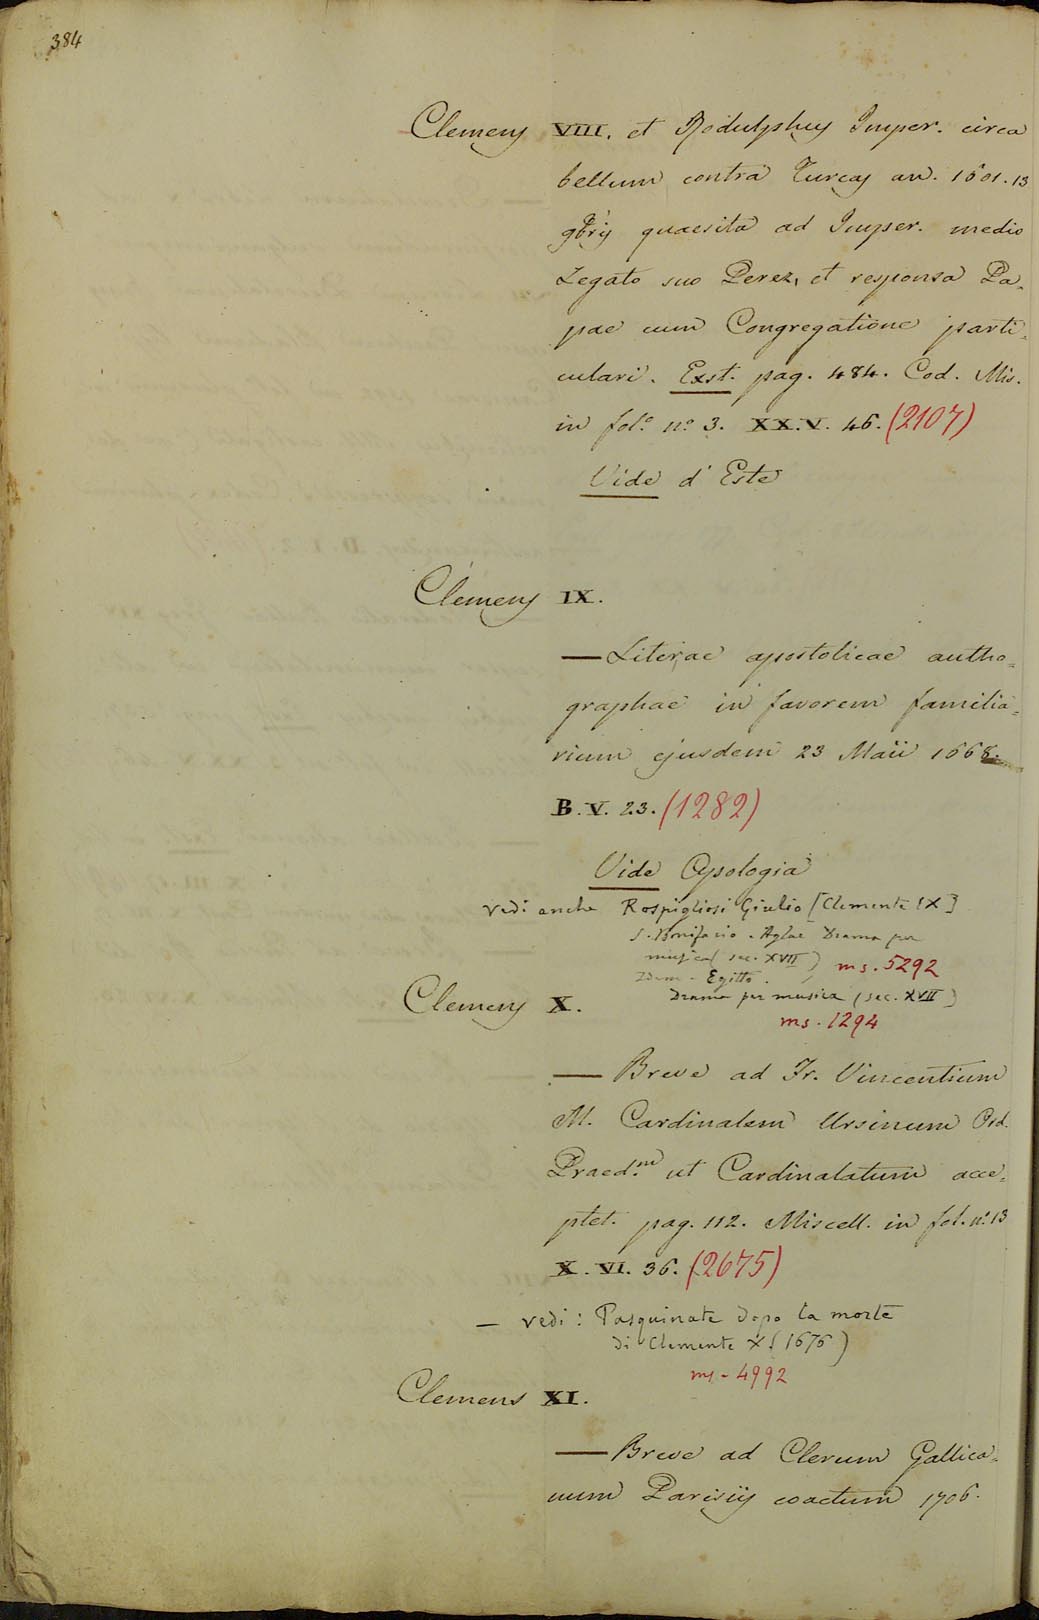 384
Clemens VIII. et Rodulphus Imper. circa
bellum contra Turcas an. 1601. 13
quaesita ad Imper. medio
Legato suo Perez, et responsa Pa-
pae cum Congregatione parti-
culari. Exst. pag. 484. Cod. Mis.
in fol.º nº 3. XX.V. 46. (2107)
Vide d'Este
Clemens IX.
— Literae apostolicae autho=
graphae in favorem familia=
rium ejusdem 23 Maii 1668.
B. V. 23. (1282)
Vide Apologia
vedi anche Rospigliosi Giulio [Clemente IX]
S. Bonifacio. Aglae Drama per
musica (sec. XVII) ms. 5292
Idem - Egitto.
Drama per musica (sec. XVII)
ms. 1294
Clemens X.
— Breve ad Fr. Vincentium
M. Cardinalem Ursinum Ord.
Praed.m ut Cardinalatum acce=
ptet. pag. 112. Miscell. in fol. nº 13
X. VI. 36. (2675)
— vedi: Pasquinate dopo la morte
di Clemente X (1676)
ms - 4992
Clemens XI.
— Breve ad Clerum Gallica=
num Parisiis coactum 1706.